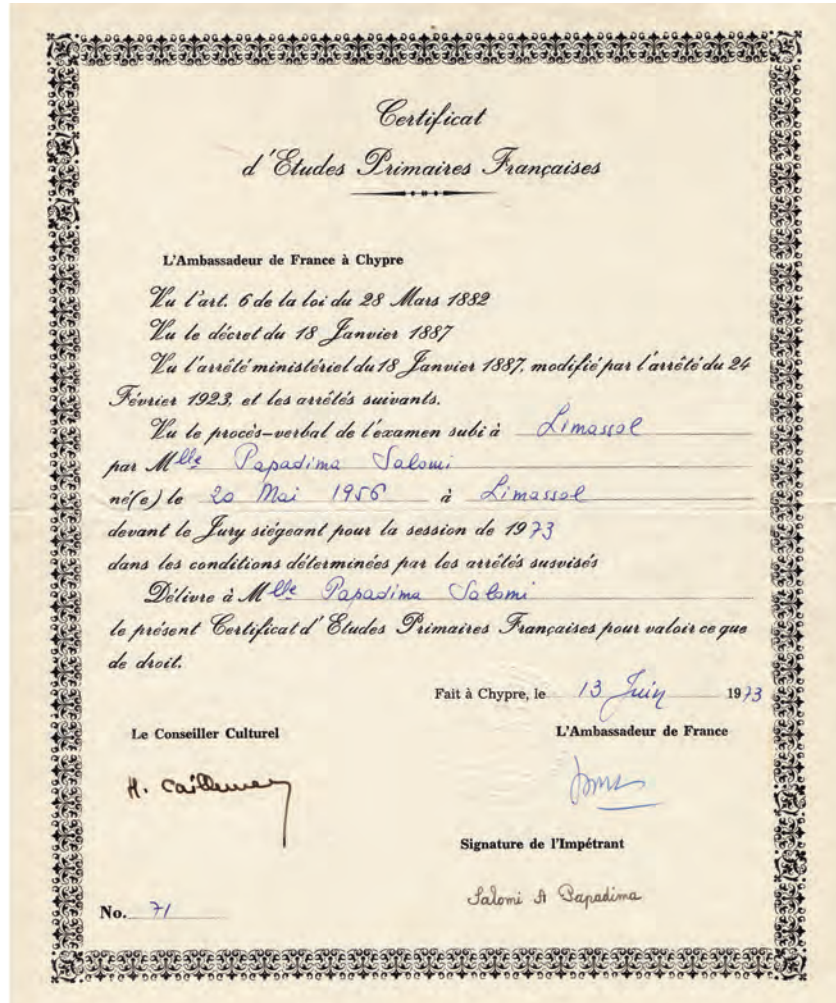 Certificat
d'Etudes Primaires Françaises
L'Ambassadeur de France à Chypre
Vu l'art. 6 de la loi du 28 Mars 1882
Vu le décret du 18 Janvier 1887
Vu l'arrêté ministériel du 18 Janvier 1887, modifié par l'arrêté du 24
Février 1923, et les arrêtés suivants.
Vu le procès-verbal de l'examen subi à Limassol
par Mlle Papadima Salomi
né(e) le 20 Mai 1956 à Limassol
devant le Jury siégeant pour la session de 1973
dans les conditions déterminées par les arrêtés susvisés
Délivre à Mlle Papadima Salomi
le présent Certificat d'Etudes Primaires Françaises pour valoir ce que
de droit.
Fait à Chypre, le 13 Juin 1973
Le Conseiller Culturel L'Ambassadeur de France
H.
Signature de l'Impétrant
Salomi A Papadima
No. 71